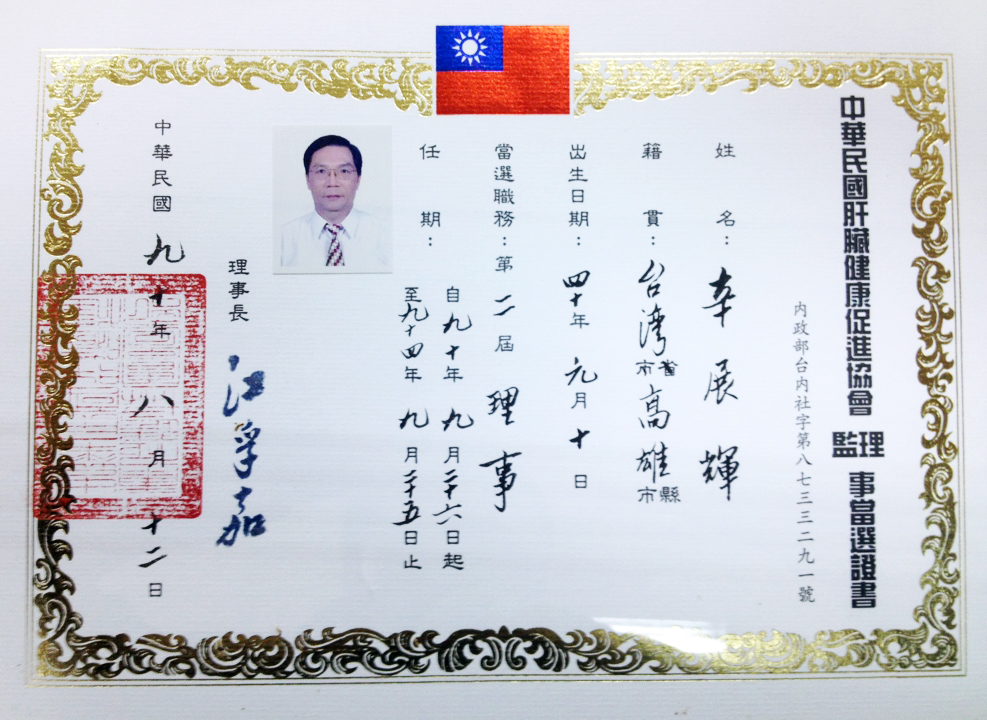 中華民國肝臟健康促進協會 理監事當選證書
內政部台內社字第八七三三二九一號
姓名：展輝
籍貫：台灣省市高雄縣市
出生日期：四十年元月十日
當選職務：第二屆理事
任期：
自九十年九月二十六日起
至九十四年九月二十五日止
理事長 江
中華民國九十年八月十二日